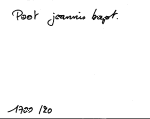 Poot joannis bapt.
1700 /20